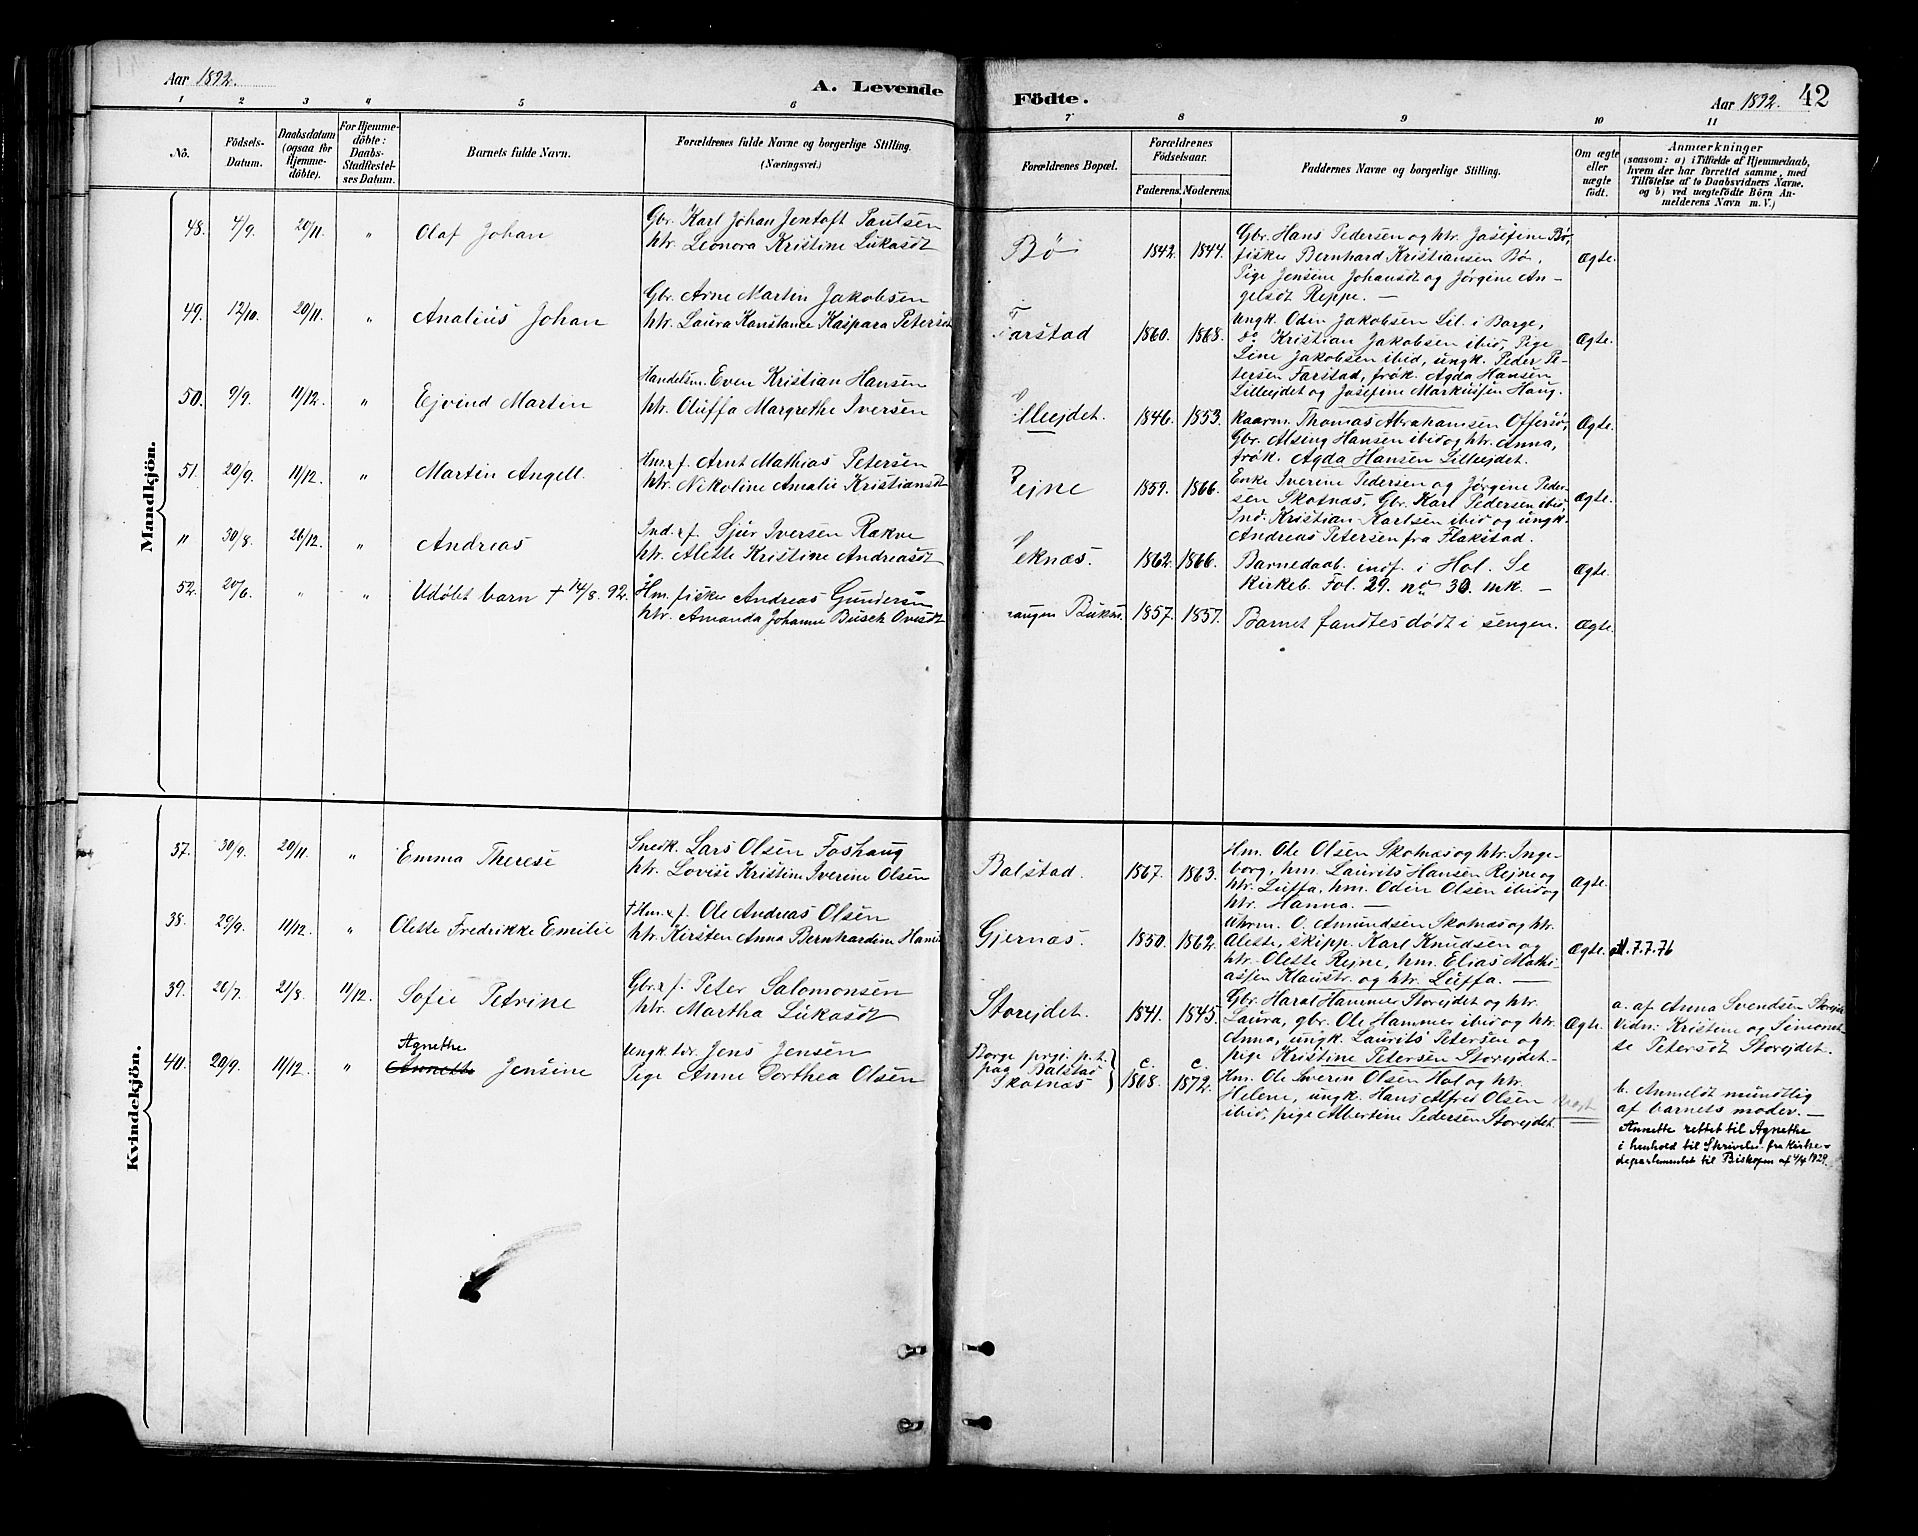 Aar 1892.
A. Levende
Födte.
Aar 1892.
42
1 2 3 4 5 6 7 8 9 10 11
No.
Födsels-Datum.
Daabsdatum (ogsaa for Hjemmedöbte).
For Hjemmedöbte: Daabs-Stadfæstelses Datum.
Barnets fulde Navn.
Forældrenes fulde Navne og borgerlige Stilling. (Næringsvei.)
Forældrenes Bopæl.
Forældrenes Födselsaar.
Faderens. Moderens.
Faddernes Navne og borgerlige Stilling.
Om ægte eller uægte födt.
Anmærkninger
(saasom: a) i Tilfælde af Hjemmedaab,
hvem der har forrettet samme, med
Tilföielse af to Daabsvidners Navne,
og b) ved uægtefödte Börn An-
melderens Navn m. V.)
Mandkjön.
48. 4/9. 20/11. " Olaf Johan
Gbr. Karl Johan Jentoft Paulsen
htr. Leonora Kristine Lukasdt
Bø 1842. 1844.
Gbr. Hans Pedersen og htr. Josefine Bø,
fisker Bernhard Kristiansen Bø,
Pige Jensine Johansdt og Jørgine An-
gelsdt Reppe. —
Ægte.
49. 12/10. 20/11. " Analius Johan
Gbr. Arne Martin Jakobsen
htr. Laura Konstance Kaspara Petersdt
Farstad 1860. 1868.
Ungk. Odin Jakobsen Lil. i Borge,
do Kristian Jakobsen ibid, Pige
Line Jakobsen ibid, ungk. Peder Pe-
tersen Farstad, frøk. Agda Hansen
Lilleejdet og Josefine Markussen Haug.
Ægte.
50. 9/9. 11/12. " Ejvind Martin
Handelsm. Even Kristian Hansen
htr. Oluffa Margrethe Iversen
Lilleejdet. 1846. 1853.
Kaarm. Thomas Abrahamsen Offersø,
Gbr. Alsing Hansen ibid og htr. Anna,
frøk. Agda Hansen Lilleejdet.
Ægte.
51. 20/9. 11/12. " Martin Angell
Hm. & f. Arnt Mathias Petersen
htr. Nikoline Amalie Kristiansdt
Rejne 1859. 1866.
Enke Iverine Pedersen og Jørgine Peder-
sen Skotnæs, Gbr. Karl Pedersen ibid,
Ind. Kristian Karlsen ibid og ungk.
Andreas Petersen fra Flakstad.
Ægte.
" 30/8. 26/12. " Andreas
Ind. & f. Sjur Iversen Rakve
htr. Alette Kristine Andreasdt
Leknæs. 1862. 1866.
Barnedaab. indf. i Hol. Se
Kirkeb. Fol. 29. no 30. mk. —
Ægte.
52. 20/6. " " Udøbt barn + 14/8. 92.
Hm. fisker Andreas Gundersen
htr. Amanda Johanne Busch Ovesdt
1857. 1857.
Barnet fandtes dødt i sengen.
Ægte.
Kvindekjön.
37. 30/9. 20/11. " Emma Therese
Snedk. Lars Olsen Foshaug
htr. Lovise Kristine Iverine Olsen
Balstad. 1867. 1863.
Hm. Ole Olsen Skotnæs og htr. Inge-
borg, hm. Laurits Hansen Rejne og
htr. Luffa, hm. Odin Olsen ibid og
htr. Hanna. —
Ægte.
38. 29/9. 11/12. " Olette Fredrikke Emilie
+Hm. & f. Ole Andreas Olsen
htr. Kirsten Anna Bernhardine
Gjernæs. 1850. 1862.
O. Amundsen Skotnæs og htr.
Alette, skipp. Karl Knudsen og
htr. Olette Rejne, hm. Elias Mathi-
assen Klaustr. og htr. Luffa. —
Ægte. 7.7.76
39. 26/7. 21/8. 11/12. Sofie Petrine
Gbr. & f. Peter Salomonsen
htr. Martha Lukasdt
Storejdet. 1841. 1845.
Gbr. Haral Hammer Storejdet og htr.
Laura, gbr. Ole Hammer ibid og htr.
Anna, ungk. Laurits Petersen og
pige Kristine Petersen Storejdet. —
Ægte.
a. af Anna Svendsen
Vidn: Kristine og Simonet-
te Petersdt Storejdet.
40. 20/9. 11/12. " Agnethe Annette Jensine
Ungk. Jens Jensen
Pige Anne Dorthea Olsen
Borge prgj. p. t.
paa Balstad
Skotnæs
c. 1868. c. 1872.
Hm. Ole Severin Olsen Hol og htr.
Helene, ungk. Hans Alfred Olsen
ibid, pige Albertine Pedersen Storejdet.
Uægt
b. Anmeldt mundtlig
af barnets moder. —
Annette rettet til Agnethe
i henhold til Skrivelse fra Kirke-
departementet til Biskopen af 4/4 1929.